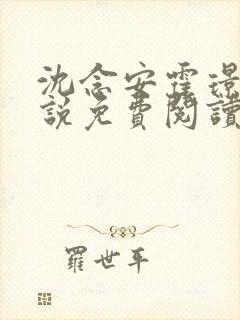 沈念安霆璟
說免費閱讀
羅世平